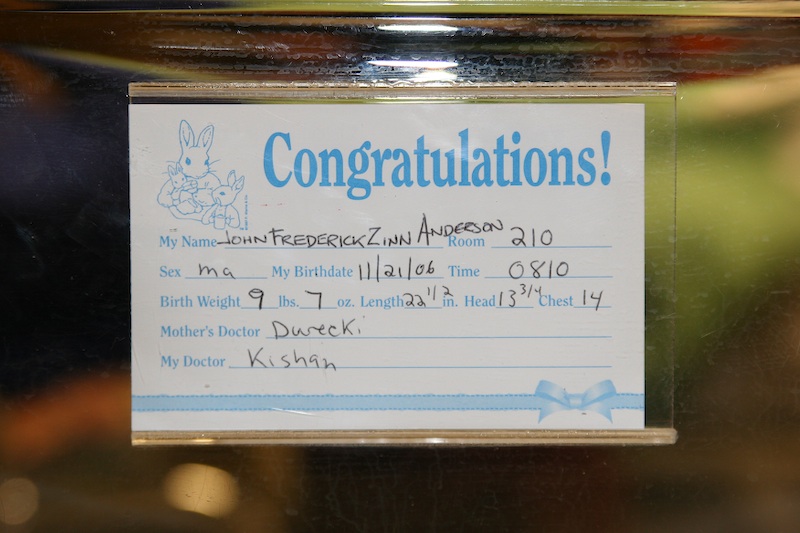 Congratulations!
My Name JOHN FREDERICK ZINN ANDERSON Room 210
Sex ma My Birthdate 11/21/06 Time 0810
Birth Weight 9 lbs. 7 oz. Length 22 1/2 in. Head 13 3/4 Chest 14
Mother's Doctor Dwecki
My Doctor Kishan